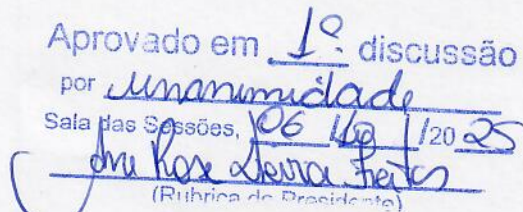 Aprovado em 1º. discussão
por unanimidade
Sala das Sessões, 06 / 10 / 20 25
Rose Freitas
(Rubrica do Presidente)